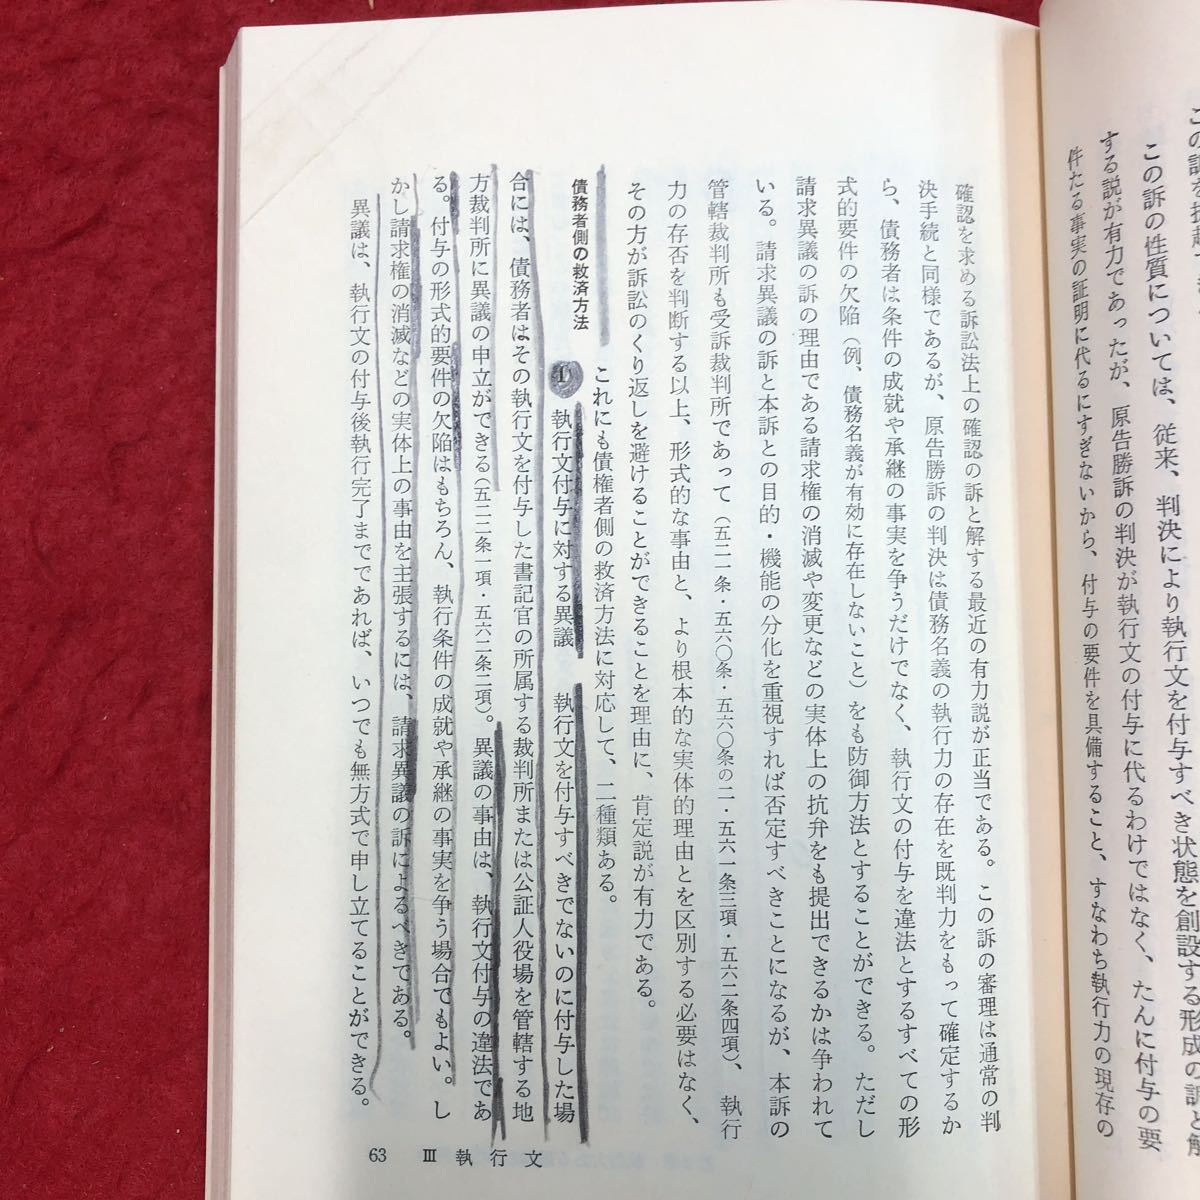 この訴の性質については、従来、判決により執行文を付与すべき状態を創設する形成の訴と解
する説が有力であったが、原告勝訴の判決が執行文の付与に代るわけではなく、たんに付与の要
件たる事実の証明に代るにすぎないから、付与の要件を具備すること、すなわち執行力の現存の
確認を求める訴訟法上の確認の訴と解する最近の有力説が正当である。この訴の審理は通常の判
決手続と同様であるが、原告勝訴の判決は債務名義の執行力の存在を既判力をもって確定するか
ら、債務者は条件の成就や承継の事実を争うだけでなく、執行文の付与を違法とするすべての形
式的要件の欠陥(例、債務名義が有効に存在しないこと)をも防御方法とすることができる。ただし
請求異議の訴の理由である請求権の消滅や変更などの実体上の抗弁をも提出できるかは争われて
いる。請求異議の訴と本訴との目的・機能の分化を重視すれば否定すべきことになるが、本訴の
管轄裁判所も受訴裁判所であって(五二一条・五六〇条・五六〇条の二・五六一条三項・五六二条四項)、執行
力の存否を判断する以上、形式的な事由と、より根本的な実体的理由とを区別する必要はなく、
その方が訴訟のくり返しを避けることができることを理由に、肯定説が有力である。
債務者側の救済方法
これにも債権者側の救済方法に対応して、二種類ある。
① 執行文付与に対する異議 執行文を付与すべきでないのに付与した場
合には、債務者はその執行文を付与した書記官の所属する裁判所または公証人役場を管轄する地
方裁判所に異議の申立ができる(五二二条一項・五六二条二項)。異議の事由は、執行文付与の違法であ
る。付与の形式的要件の欠陥はもちろん、執行条件の成就や承継の事実を争う場合でもよい。し
かし請求権の消滅などの実体上の事由を主張するには、請求異議の訴によるべきである。
異議は、執行文の付与後執行完了まででであれば、いつでも無方式で申し立てることができる。
63 Ⅲ 執行文